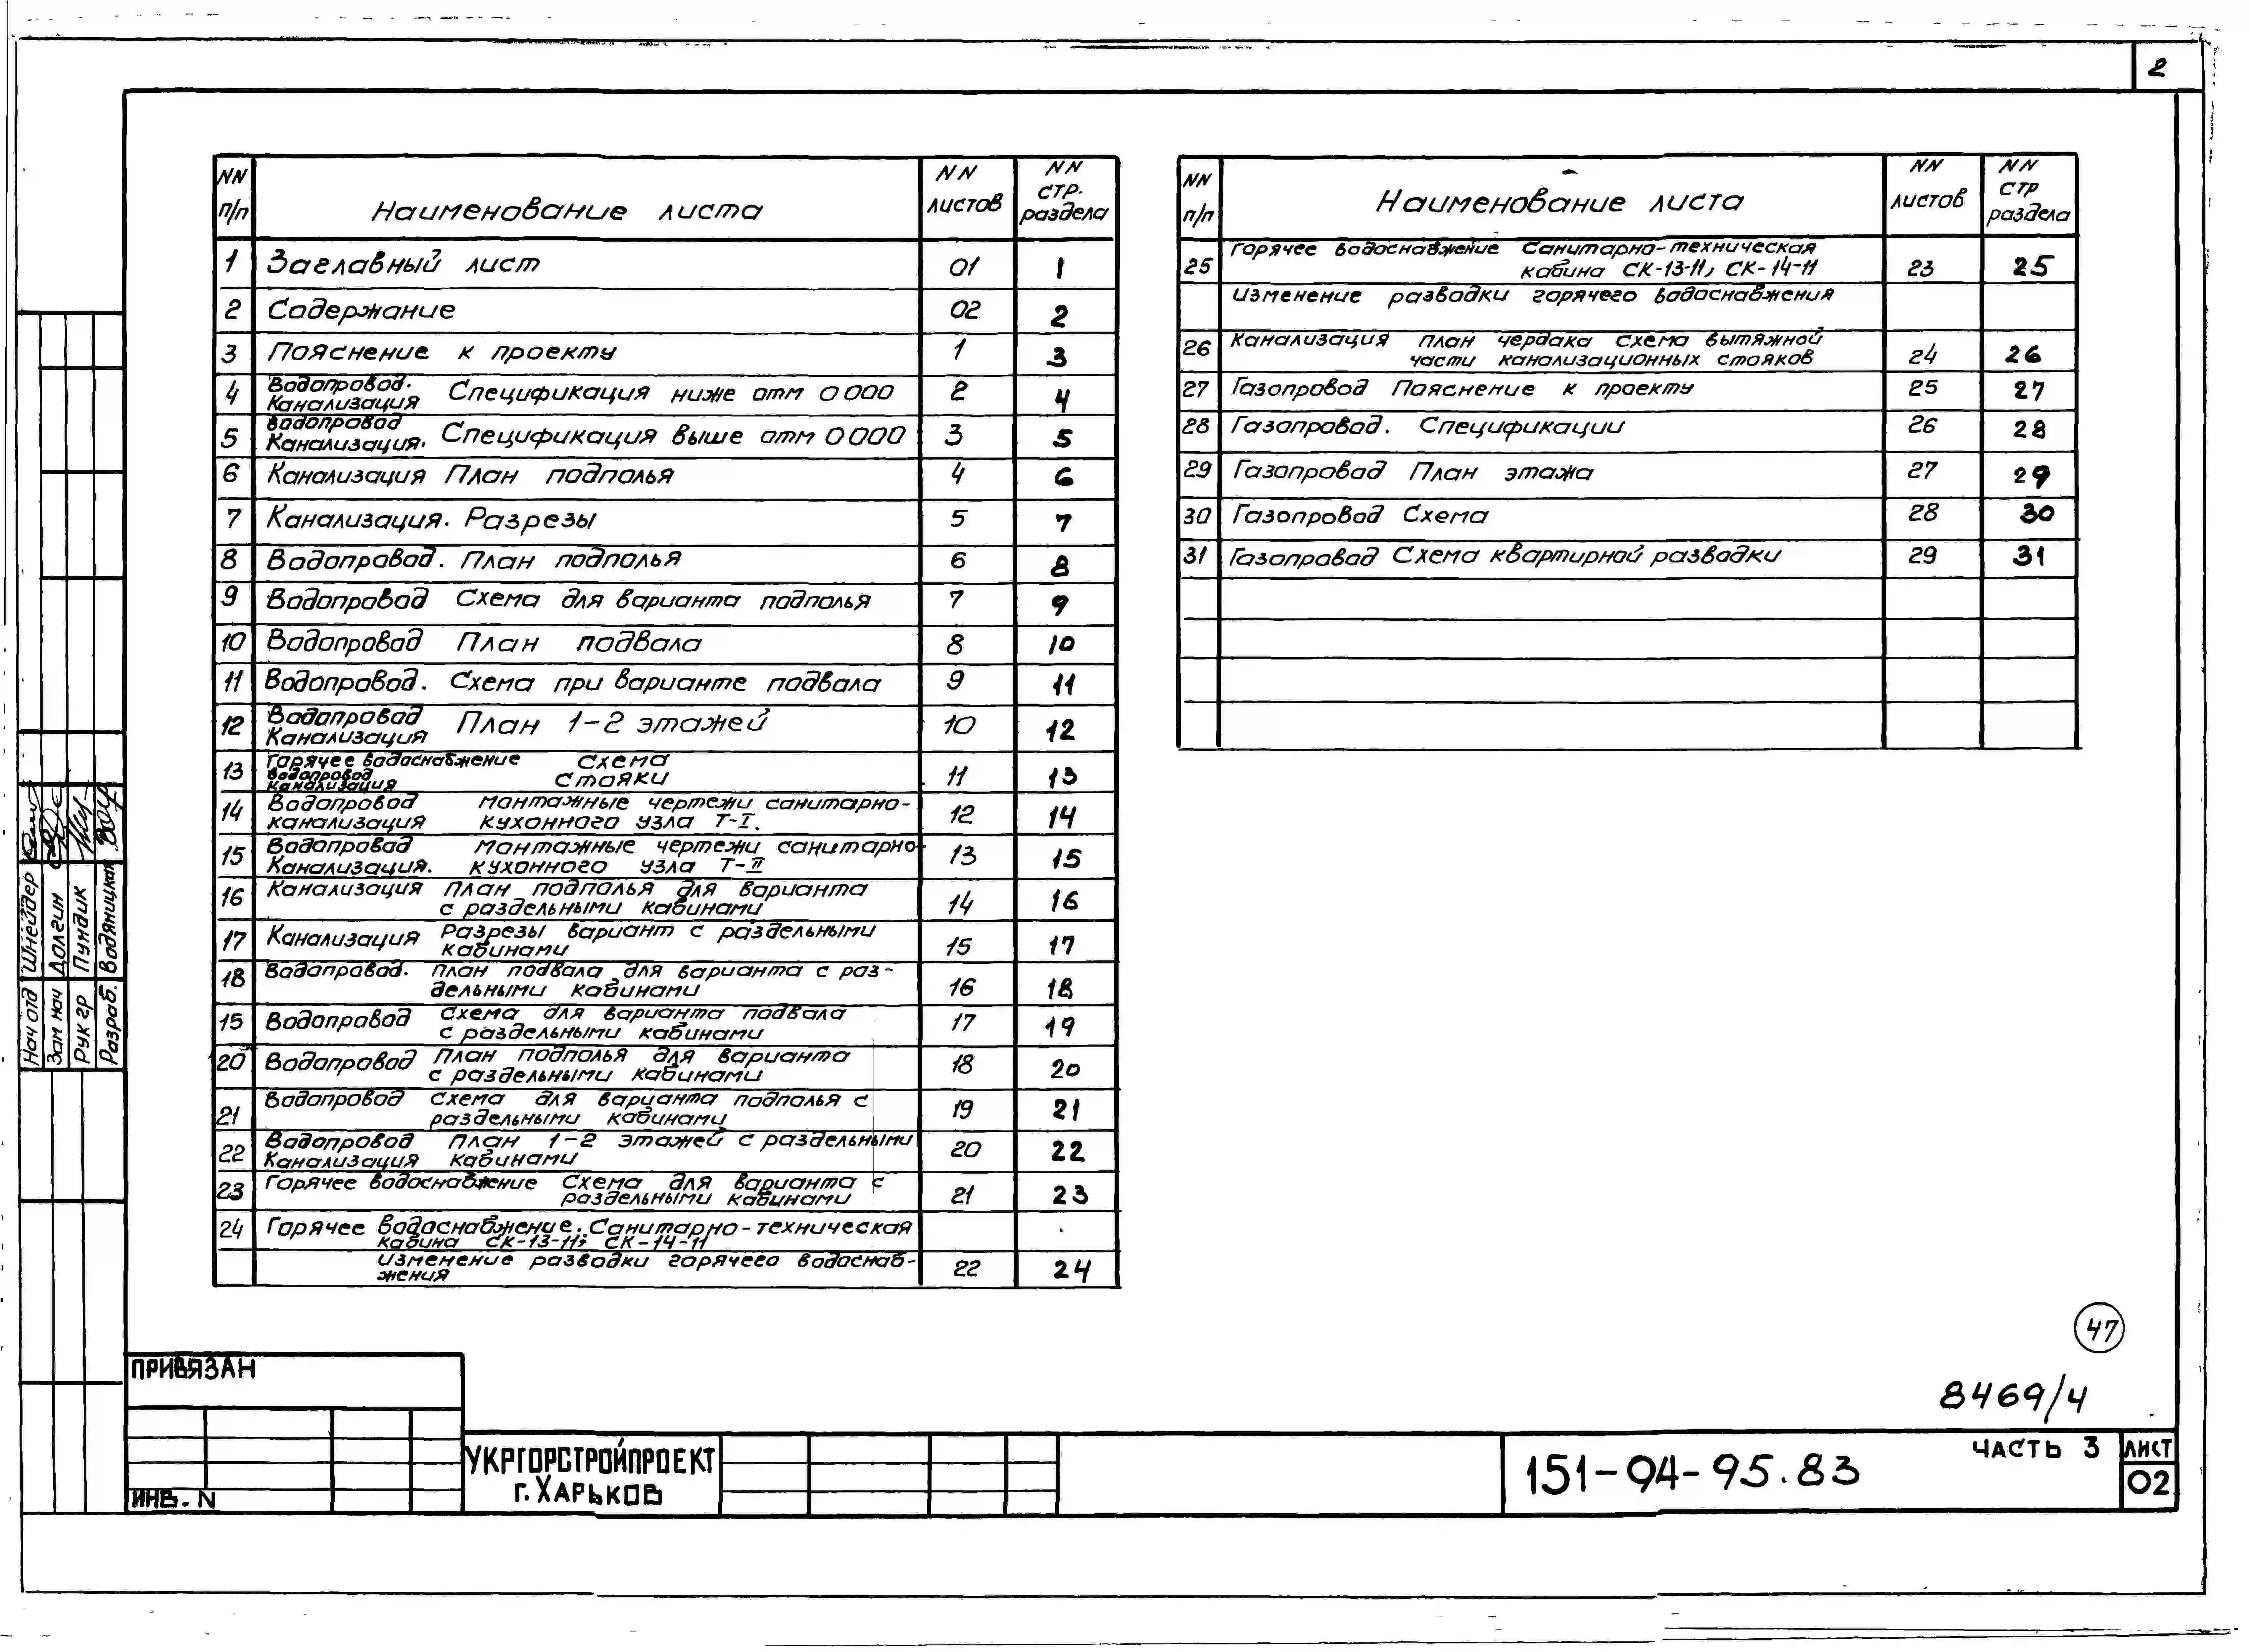 2
NN п/п Наименование листа NN листов NN стр. раздела
1 Заглавный лист 01 1
2 Содержание 02 2
3 Пояснение к проекту 1 3
4 Водопровод. Канализация Спецификация ниже отм 0 000 2 4
5 Водопровод Канализация. Спецификация выше отм 0 000 3 5
6 Канализация План подполья 4 6
7 Канализация. Разрезы 5 7
8 Водопровод. План подполья 6 8
9 Водопровод Схема для варианта подполья 7 9
10 Водопровод План подвала 8 10
11 Водопровод. Схема при варианте подвала 9 11
12 Водопровод Канализация План 1-2 этажей 10 12
13 Горячее водоснабжение Водопровод Канализация Схема Стояки 11 13
14 Водопровод монтажные чертежи санитарно-
канализация кухонного узла Т-I. 12 14
15 Водопровод монтажные чертежи санитарно-
Канализация. кухонного узла Т-II 13 15
16 Канализация план подполья для варианта
с раздельными кабинами 14 16
17 Канализация Разрезы вариант с раздельными
кабинами 15 17
18 Водопровод. план подвала для варианта с раз-
дельными кабинами 16 18
15 Водопровод Схема для варианта подвала
с раздельными кабинами 17 19
20 Водопровод План подполья для варианта
с раздельными кабинами 18 20
21 Водопровод Схема для варианта подполья с
раздельными кабинами 19 21
22 Водопровод План 1-2 этажей с раздельными
Канализация кабинами 20 22
23 Горячее водоснабжение Схема для варианта с
раздельными кабинами 21 23
24 Горячее водоснабжение. Санитарно-техническая
кабина СК-13-11, СК-14-11
изменение разводки горячего водоснаб-
жения 22 24
NN п/п Наименование листа NN листов NN стр раздела
25 Горячее водоснабжение Санитарно-техническая
кабина СК-13-11, СК-14-11 23 25
Изменение разводки горячего водоснабжения
26 Канализация план чердака схема вытяжной
части канализационных стояков 24 26
27 Газопровод Пояснение к проекту 25 27
28 Газопровод. Спецификации 26 28
29 Газопровод План этажа 27 29
30 Газопровод Схема 28 30
31 Газопровод Схема квартирной разводки 29 31
Нач отд Шнейдер
Зам нач Долгин
Рук гр Пундик
Разраб. Водяницкая
47
8469/4
ПРИВЯЗАН
ИНВ. N
УКРГОРСТРОЙПРОЕКТ
г. Харьков
151-94-95.83
ЧАСТЬ 3
ЛИСТ
02